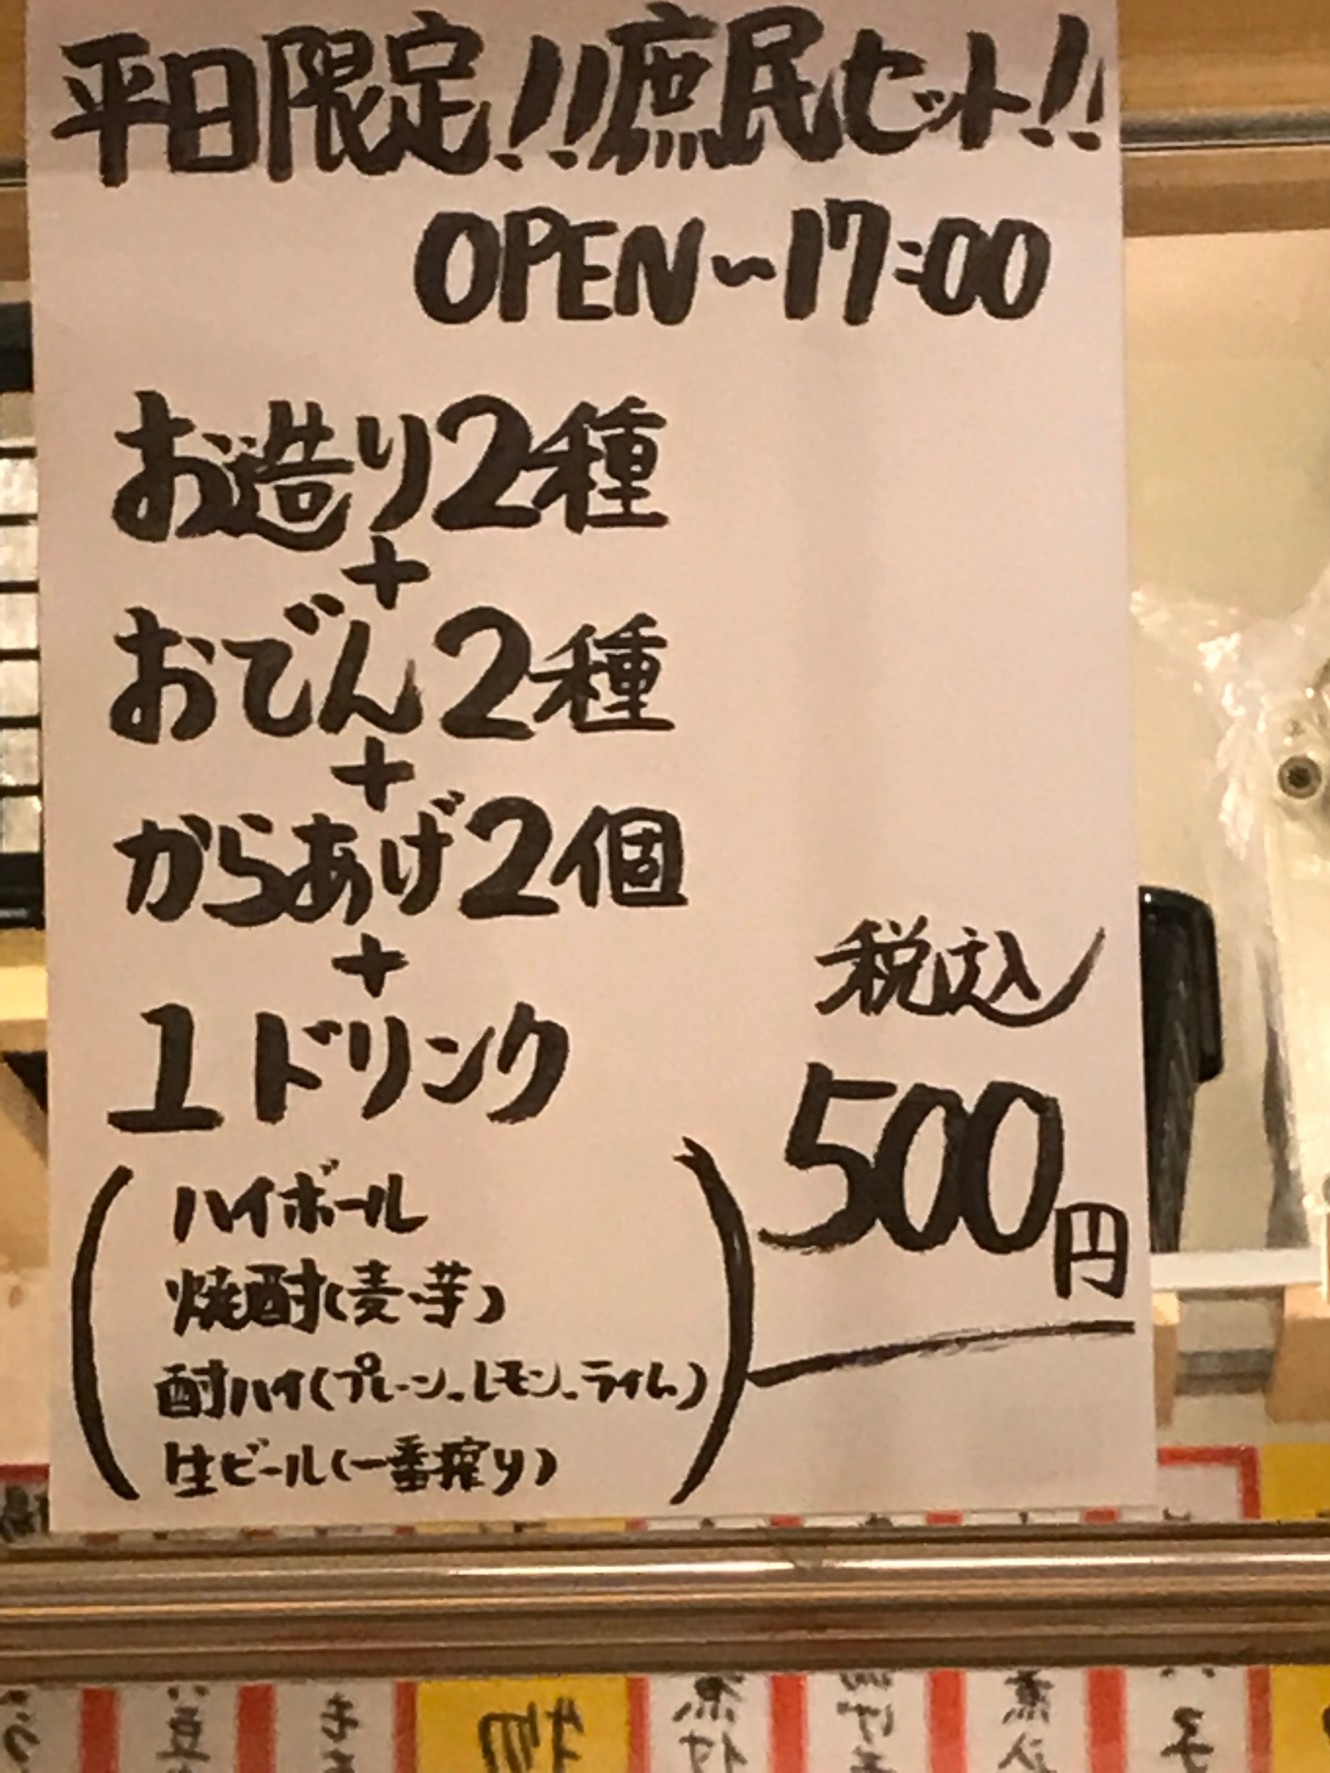 平日限定!!庶民セット!!
OPEN~17:00
お造り2種
+
おでん2種
+
からあげ2個
+
1ドリンク
税込
500円
(ハイボール
焼酎(麦・芋)
酎ハイ(プレーン、レモン、ライム)
生ビール(一番搾り))